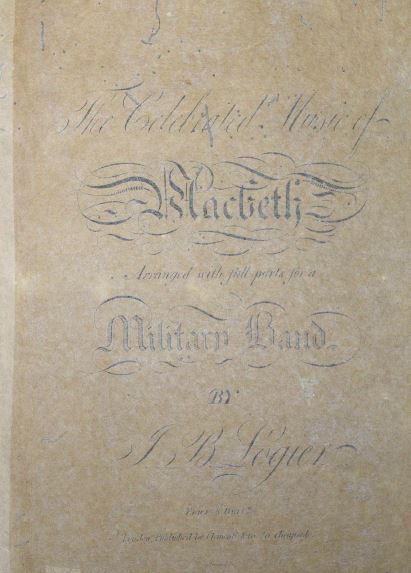 The Celebrated Music of
Macbeth
Arranged with full parts for a
Military Band
BY
J B Logier
Price
London, Published by Clementi & Co. Cheapside